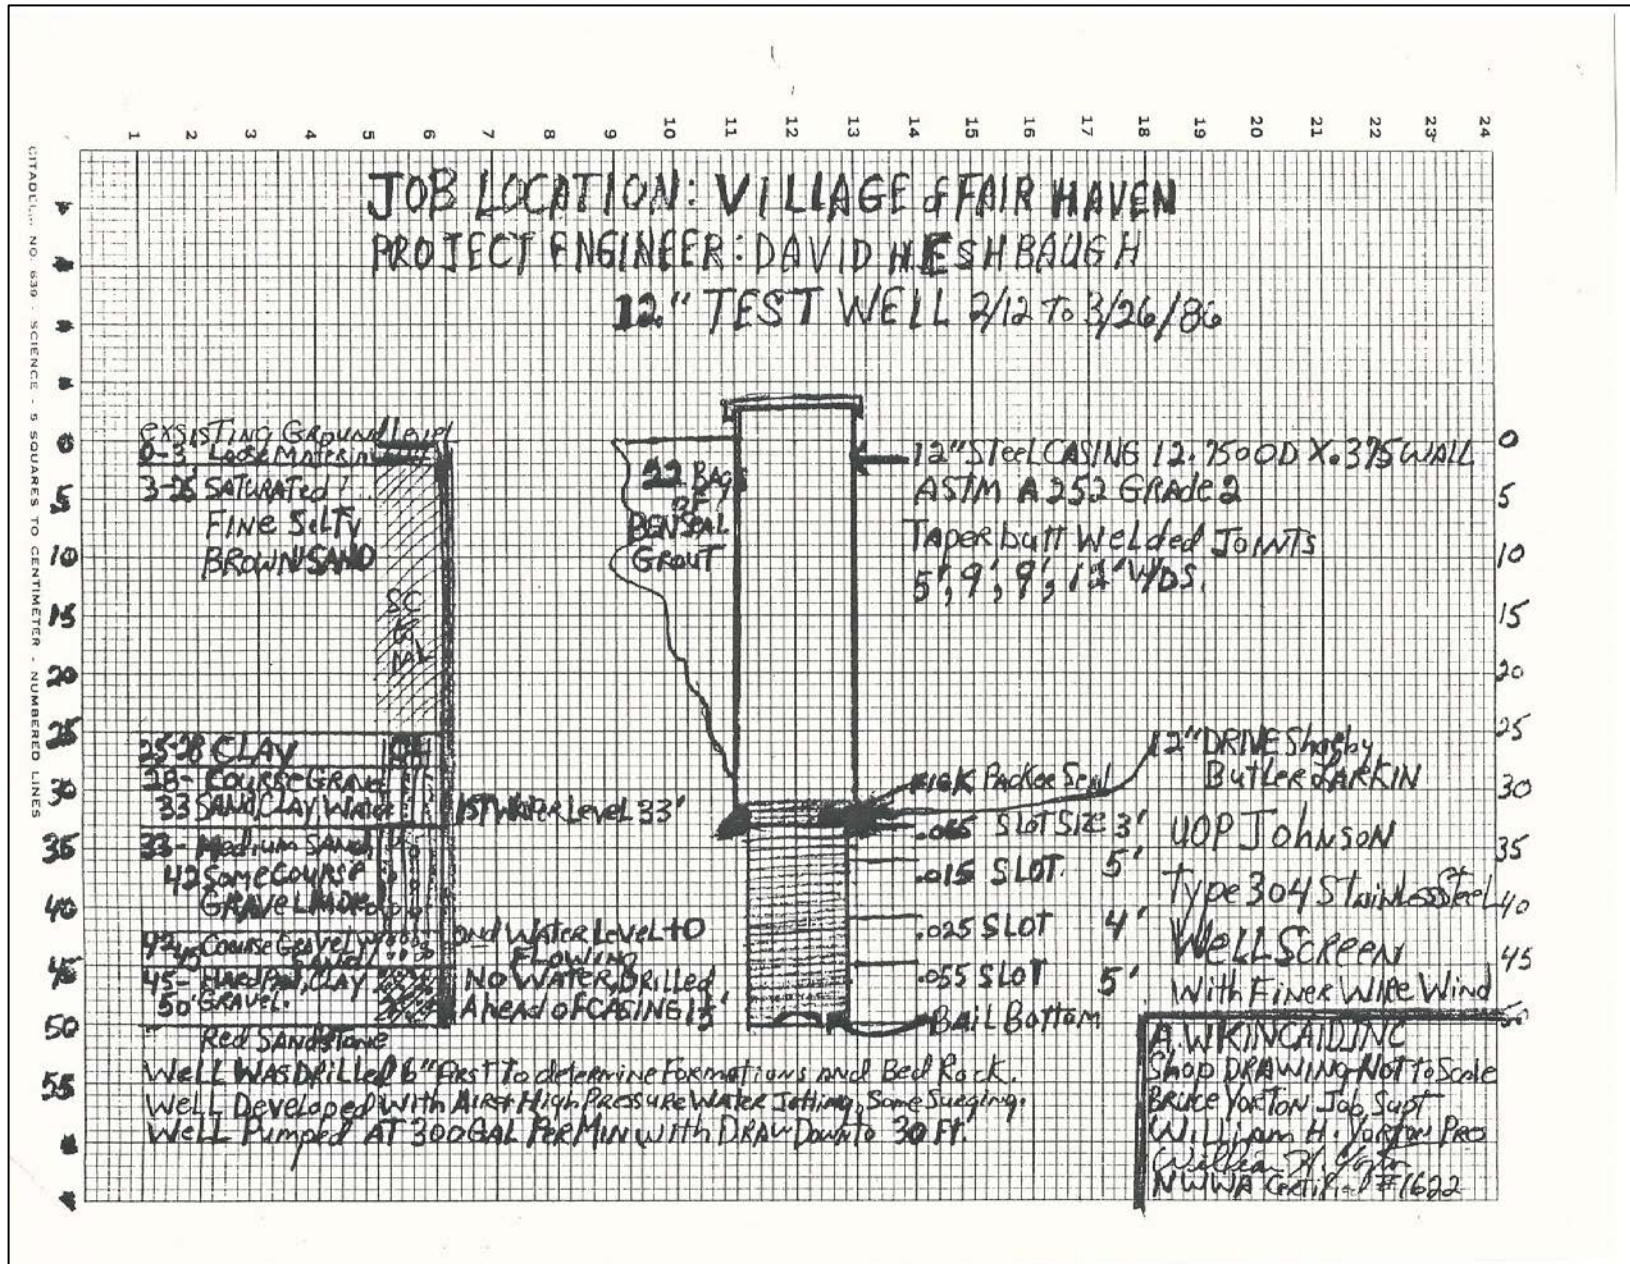 1 2 3 4 5 6 7 8 9 10 11 12 13 14 15 16 17 18 19 20 21 22 23 24
CITADEL NO. 639 - SCIENCE - 5 SQUARES TO CENTIMETER - NUMBERED LINES
JOB LOCATION: VILLAGE of FAIR HAVEN
PROJECT ENGINEER: DAVID HESHBAUGH
12" TEST WELL 2/12 To 3/26/86
EXSISTING GROUND Level
0-3' Loose Material
3-25' SATURATED
FINE SILTY
BROWN SAND
25-28 CLAY
28- COURSE GRAVEL
33 SAND, CLAY, Water
33- Medium SAND,
42 Some COURSE
GRAVEL
42-45 Course Gravely
SAND
45- HARDPAN, CLAY
50' GRAVEL.
Red SANDSTONE
1ST WATER LEVEL 33'
2nd WATER LEVEL +0
FLOWING
NO WATER, Drilled
Ahead of CASING
22 BAG
OF
BENSEAL
GROUT
12" Steel CASING 12.750 OD X .375 WALL
ASTM A 252 GRADE 2
Taper butt Welded JOINTS
5', 9', 9', 12'
12" DRIVE Shoe by
Butler LARKIN
Packer Seal
SLOT SIZE 3'
.015 SLOT. 5'
.025 SLOT 4'
.055 SLOT 5'
BAIL Bottom
UOP JOHNSON
Type 304 Stainless Steel
Well Screen
With Finer Wire Wind
0
5
10
15
20
25
30
35
40
45
50
55
0
5
10
15
20
25
30
35
40
45
50
Well WAS Drilled 6" First To determine Formations and Bed Rock.
Well Developed with Air & High Pressure Water Jetting, Some Surging.
Well Pumped AT 300 GAL Per Min with DRAW Down to 30 Ft.
A.W KINCAID INC
Shop DRAWING Not to Scale
Bruce YORTON Job Supt
William H. Yorton Pres
William H. Yorton
NWWA Certified #1622